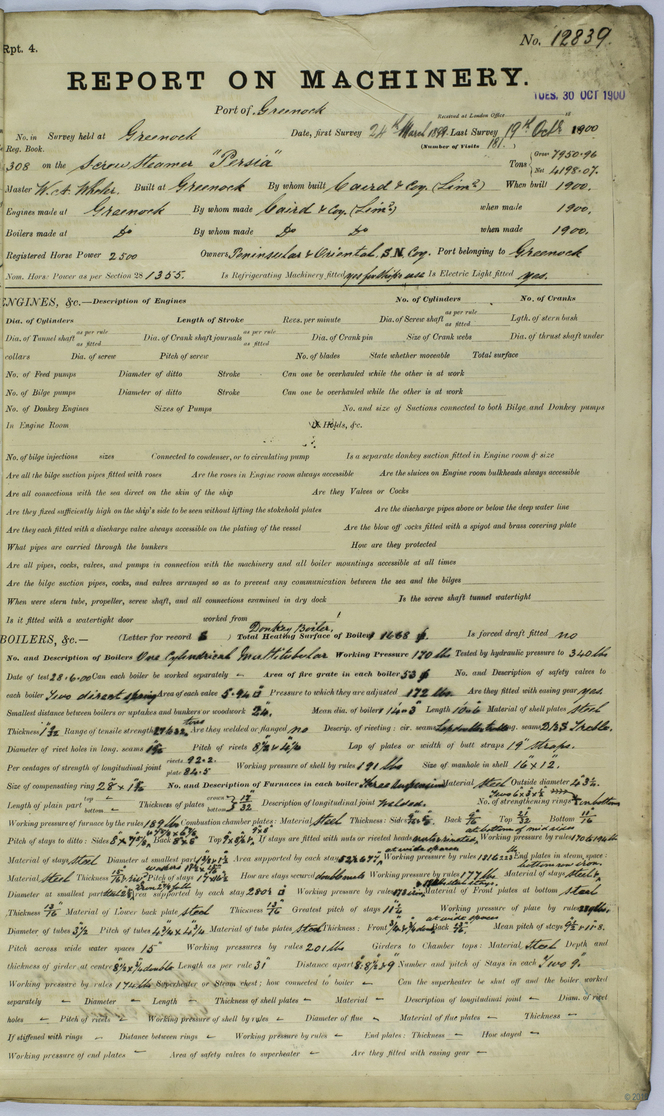 Rpt. 4.
No. 12839.
REPORT ON MACHINERY.
Port of Greenock
TUES. 30 OCT 1900
Received at London Office
No. in Survey held at Greenock Date, first Survey 24th March 1899 Last Survey 19th Octr 1900
Reg. Book. (Number of Visits 181 )
308 on the Screw Steamer "Persia" Tons Gross 7950.96 Net 4198.07.
Master Built at Greenock By whom built Caird & Coy. (Limd) When built 1900.
Engines made at Greenock By whom made Caird & Coy. (Limd) when made 1900.
Boilers made at Do By whom made Do Do when made 1900.
Registered Horse Power 2500 Owners Peninsular & Oriental S.N. Coy. Port belonging to Greenock
Nom. Horse Power as per Section 28 1355. Is Refrigerating Machinery fitted yes for ship's use Is Electric Light fitted yes.
ENGINES, &c.—Description of Engines No. of Cylinders No. of Cranks
Dia. of Cylinders Length of Stroke Revs. per minute Dia. of Screw shaft as per rule as fitted Lgth. of stern bush
Dia. of Tunnel shaft as per rule as fitted Dia. of Crank shaft journals as per rule as fitted Dia. of Crank pin Size of Crank webs Dia. of thrust shaft under
collars Dia. of screw Pitch of screw No. of blades State whether moveable Total surface
No. of Feed pumps Diameter of ditto Stroke Can one be overhauled while the other is at work
No. of Bilge pumps Diameter of ditto Stroke Can one be overhauled while the other is at work
No. of Donkey Engines Sizes of Pumps No. and size of Suctions connected to both Bilge and Donkey pumps
In Engine Room In Holds, &c.
No. of bilge injections sizes Connected to condenser, or to circulating pump Is a separate donkey suction fitted in Engine room & size
Are all the bilge suction pipes fitted with roses Are the roses in Engine room always accessible Are the sluices on Engine room bulkheads always accessible
Are all connections with the sea direct on the skin of the ship Are they Valves or Cocks
Are they fixed sufficiently high on the ship's side to be seen without lifting the stokehold plates Are the discharge pipes above or below the deep water line
Are they each fitted with a discharge valve always accessible on the plating of the vessel Are the blow off cocks fitted with a spigot and brass covering plate
What pipes are carried through the bunkers How are they protected
Are all pipes, cocks, valves, and pumps in connection with the machinery and all boiler mountings accessible at all times
Are the bilge suction pipes, cocks, and valves arranged so as to prevent any communication between the sea and the bilges
When were stern tube, propeller, screw shaft, and all connections examined in dry dock Is the screw shaft tunnel watertight
Is it fitted with a watertight door worked from
Donkey Boiler.
BOILERS, &c.— (Letter for record ) Total Heating Surface of Boilers 1688 Is forced draft fitted no
No. and Description of Boilers One Cylindrical Multitubular Working Pressure 170 lbs Tested by hydraulic pressure to 340 lbs
Date of test 28.6.00 Can each boiler be worked separately Area of fire grate in each boiler 53 No. and Description of safety valves to
each boiler Two direct spring Area of each valve 5.94 Pressure to which they are adjusted 172 lbs Are they fitted with easing gear yes.
Smallest distance between boilers or uptakes and bunkers or woodwork 24" Mean dia. of boilers 14-3 Length 10-6 Material of shell plates steel
Thickness Range of tensile strength tons Are they welded or flanged no Descrip. of riveting: cir. seams Lap double long. seams D.B.S Treble.
Diameter of rivet holes in long. seams Pitch of rivets Lap of plates or width of butt straps 19" straps.
Per centages of strength of longitudinal joint rivets 92.2 plate 84.5 Working pressure of shell by rules 191 lbs Size of manhole in shell 16" x 12".
Size of compensating ring No. and Description of Furnaces in each boiler Three Suspension Material steel Outside diameter
Length of plain part top bottom Thickness of plates crown bottom Description of longitudinal joint welded. No. of strengthening rings
Working pressure of furnace by the rules 189 lbs Combustion chamber plates: Material steel Thickness: Sides Back Top Bottom
Pitch of stays to ditto: Sides Back Top If stays are fitted with nuts or riveted heads Working pressure by rules
Material of stays steel Diameter at smallest part Area supported by each stay Working pressure by rules End plates in steam space:
Material steel Thickness Pitch of stays How are stays secured double nuts Working pressure by rules 177 lbs Material of stays steel
Diameter at smallest part Area supported by each stay Working pressure by rules Material of Front plates at bottom steel
Thickness Material of Lower back plate steel Thickness Greatest pitch of stays Working pressure of plate by rules
Diameter of tubes 3½ Pitch of tubes Material of tube plates steel Thickness: Front Back Mean pitch of stays
Pitch across wide water spaces 15" Working pressures by rules 201 lbs Girders to Chamber tops: Material Steel Depth and
thickness of girder at centre Length as per rule 31" Distance apart Number and pitch of Stays in each Two 9"
Working pressure by rules Superheater or Steam chest; how connected to boiler Can the superheater be shut off and the boiler worked
separately Diameter Length Thickness of shell plates Material Description of longitudinal joint Diam. of rivet
holes Pitch of rivets Working pressure of shell by rules Diameter of flue Material of flue plates Thickness
If stiffened with rings Distance between rings Working pressure by rules End plates: Thickness How stayed
Working pressure of end plates Area of safety valves to superheater Are they fitted with easing gear